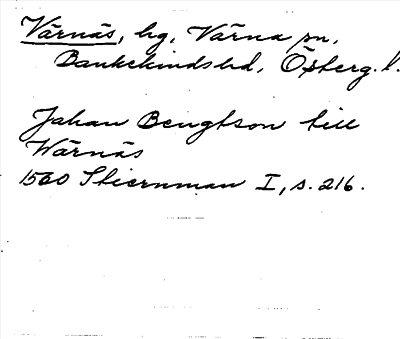 Värnäs, hg, Värna sn,
Bankekindshd, Östberg. l.
Johan Bengtson till
Wärnäs
1560 Stiernman I, s. 216.